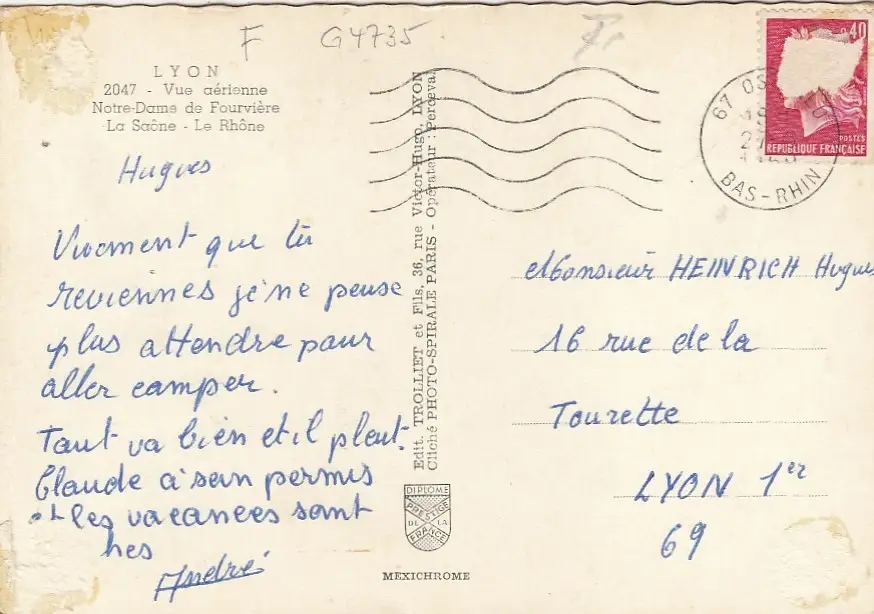 F G4735
LYON
2047 - Vue aérienne
Notre-Dame de Fourvière
La Saône - Le Rhône
Hugues
Vivement que tu
reviennes je ne peuse
plus attendre pour
aller camper.
Tout va bien et il pleut.
Claude à son permis
et les vacances sont
André
Edit. TROLLIET et Fils, 36, rue Victor-Hugo, LYON
Cliché PHOTO-SPIRALE PARIS - Opérateur : Perceval
DIPLOME
PRESTIGE
DE LA
FRANCE
MEXICHROME
0,40
POSTES
REPUBLIQUE FRANÇAISE
67
BAS-RHIN
Monsieur HEINRICH Hugues
16 rue de la
Tourette
LYON 1er
69